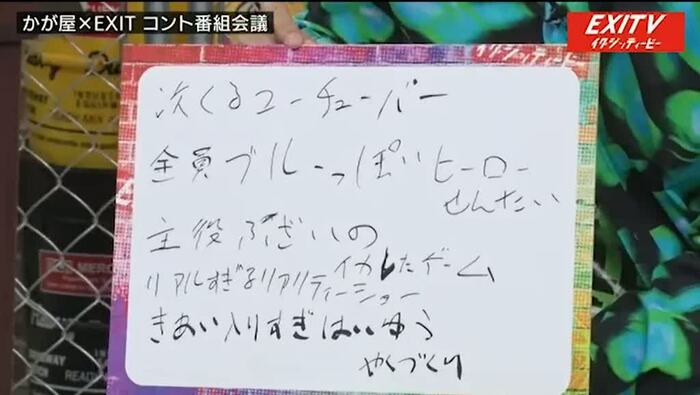 かが屋×EXIT コント番組会議
EXITV
イグジッティービー
イグジッティービー
次くるユーチューバー
全員ブルーっぽいヒーロー
せんたい
主役ふざいの
イカしたゲーム
リアルすぎるリアリティーショー
きあい入りすぎはいゆう
やくづくり
MERC
READ